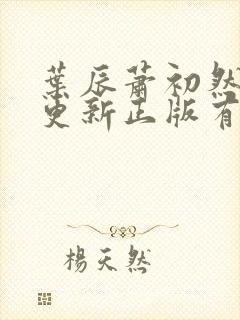 葉辰蕭初然
更新正版有
楊天然